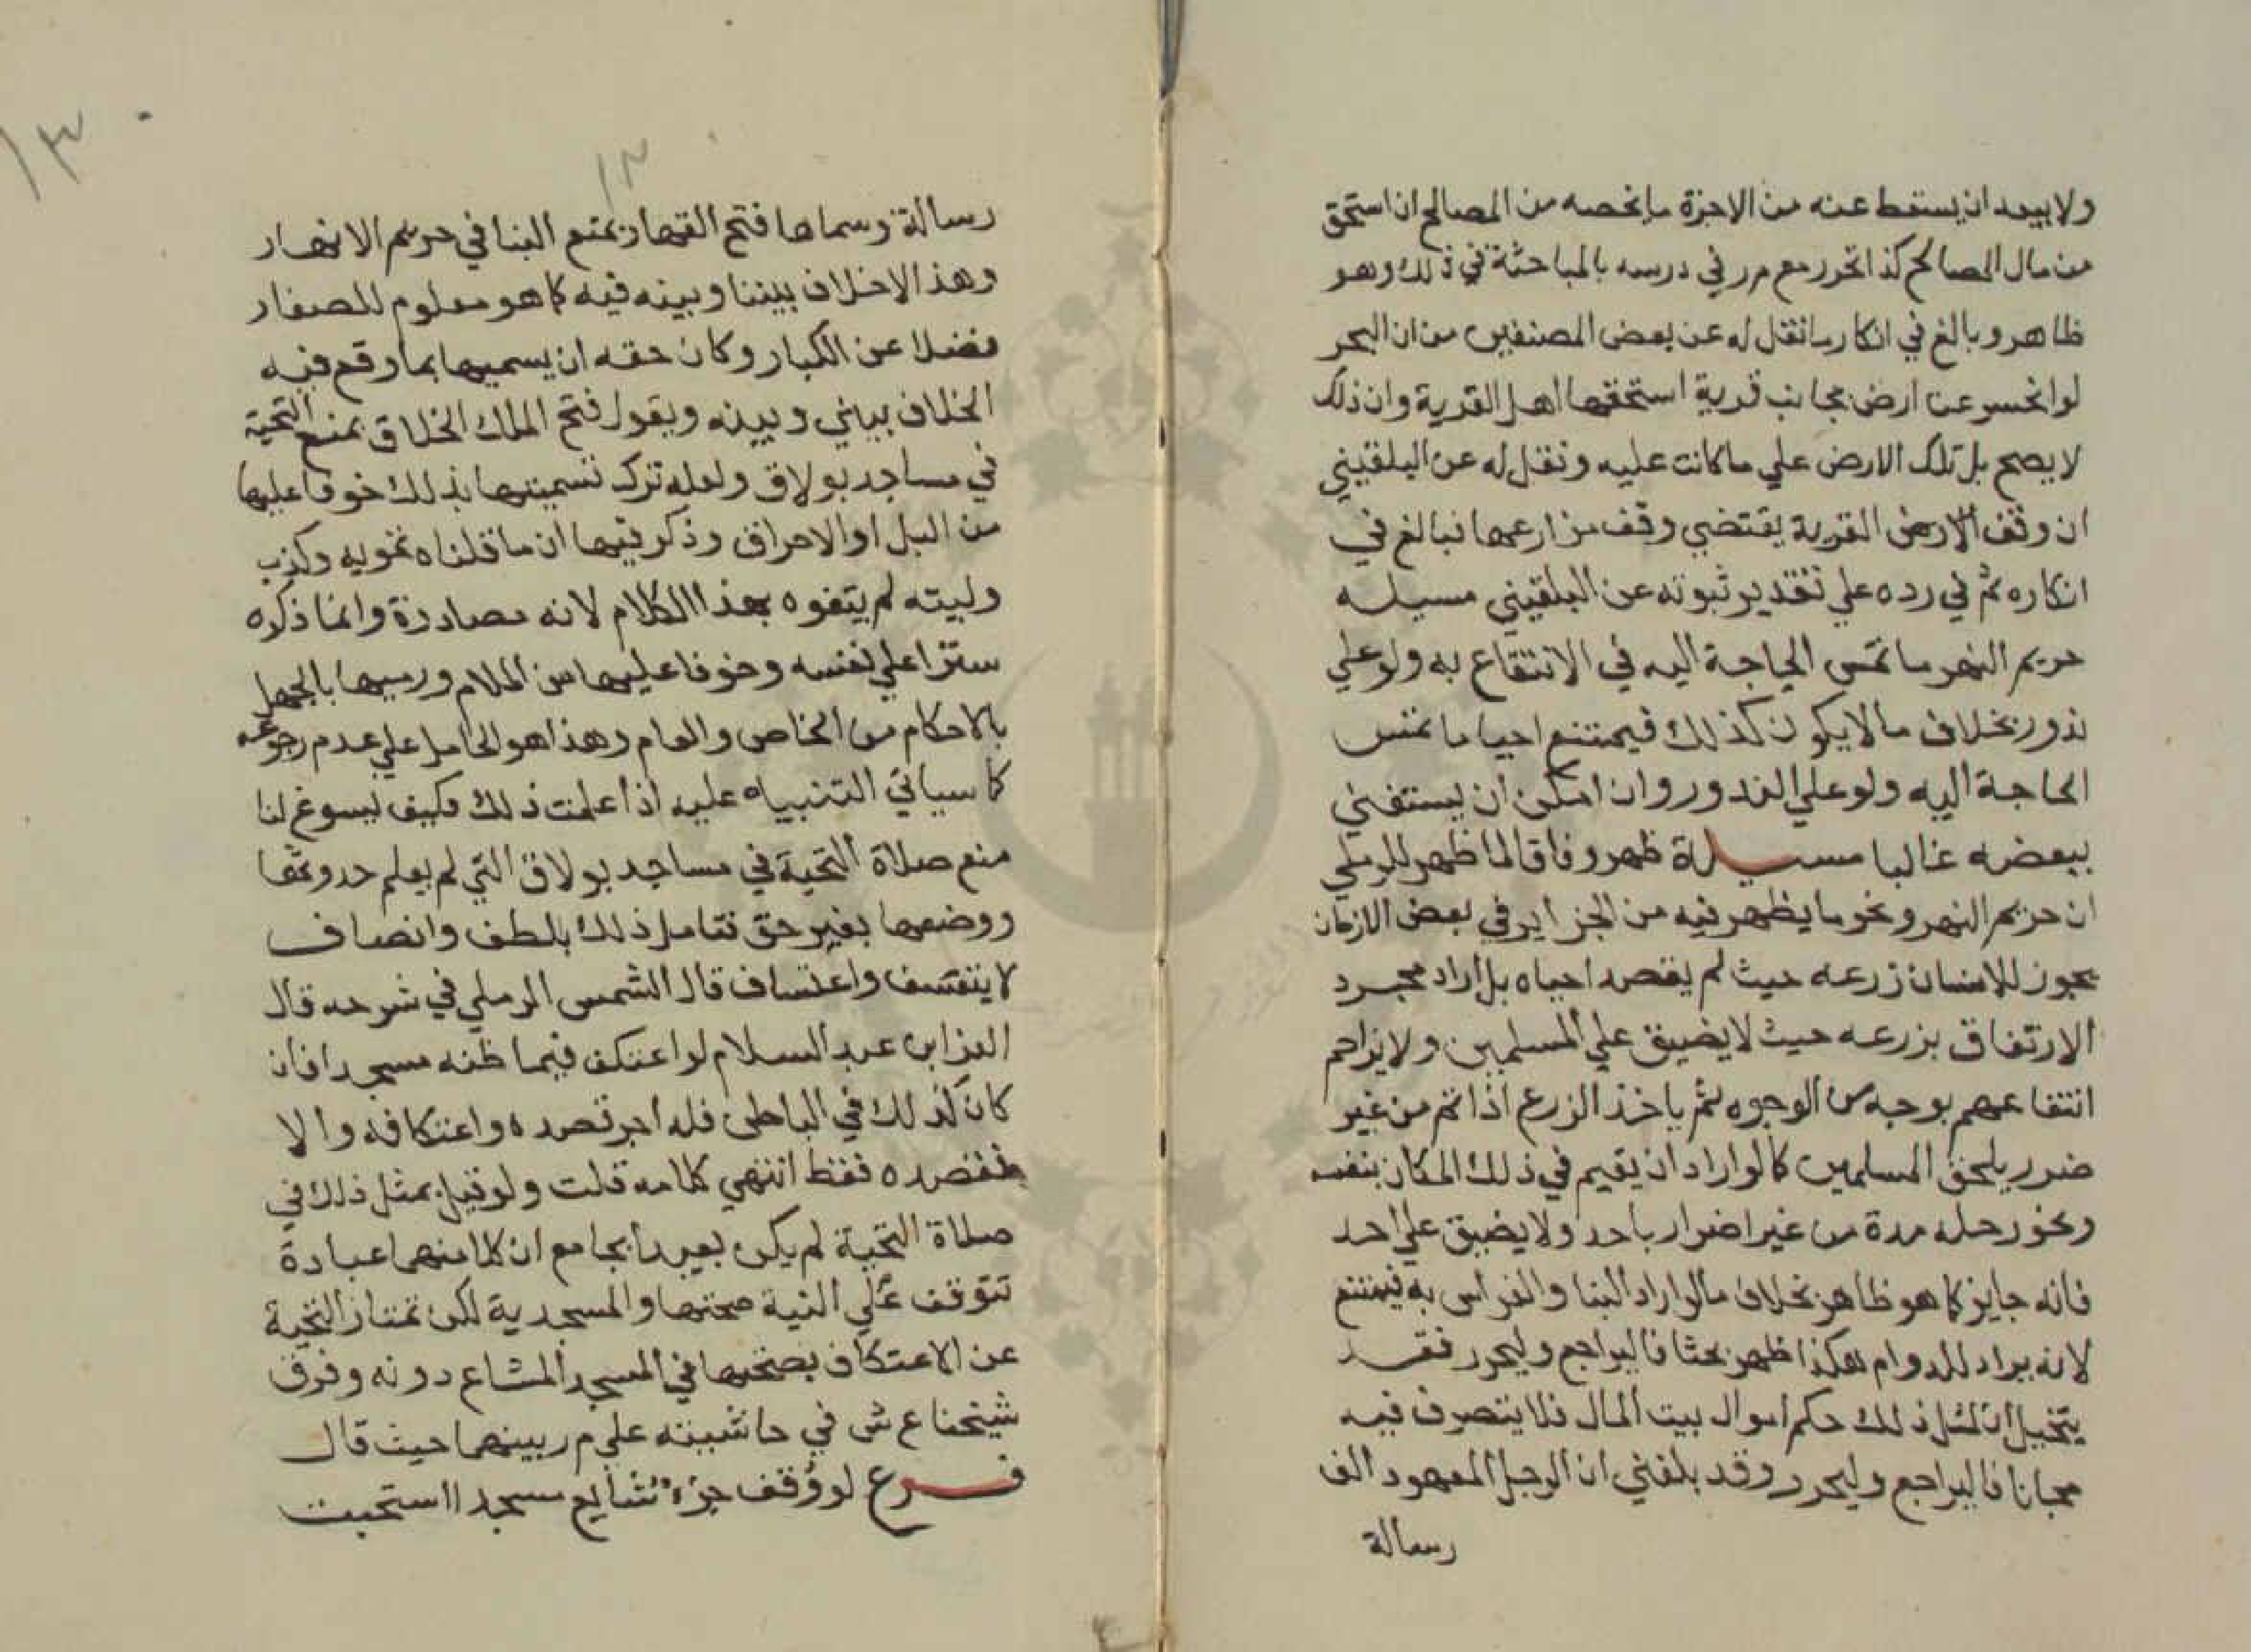 ولا يبعد ان يسقط عنه من الاجرة ما يخصه من المصالح ان استحق
من مال المصالح كذا تحرر مع م ر في درسه بالمباحثة في ذلك وهو
ظاهر وبالغ في انكار ما نقل له عن بعض المصنفين من ان البحر
لو انحسر عن ارض بجانب قرية استحقها اهل القرية وان ذلك
لا يصح بل تلك الارض علي ما كانت عليه ونقل له عن البلقيني
ان وقف الارض القرية يقتضي وقف مزارعها فبالغ في
انكاره ثم في رده علي تقدير ثبوته عن البلقيني مسيله
حريم النهر ما تمس الحاجة اليه في الانتفاع به ولو علي
ندور بخلاف ما لا يكون كذلك فيمتنع احيا ما تمس
الحاجة اليه ولو علي الندور وان امكن ان يستغني
ببعضه غالبا مسيلة ظهر وفاقا لما ظهر للرملي
ان حريم النهر ونحو ما يظهر فيه من الجزاير في بعض الازمان
يجوز للانسان زرعه حيث لم يقصد احياه بل اراد مجرد
الارتفاق بزرعه حيث لا يضيق علي المسلمين ولا يزاحم
انتفاعهم بوجه من الوجوه ثم ياخذ الزرع اذا تم من غير
ضرر يلحق المسلمين كما لو اراد ان يقيم في ذلك المكان بنفسه
ونحو رحله مدة من غير اضرار باحد ولا يضيق علي احد
فانه جايز كما هو ظاهر بخلاف ما لو اراد البنا والغراس به فيمتنع
لانه يراد للدوام هكذا ظهر بحثا فاليراجع وليحرر فقد
يتخيل ان لمثل ذلك حكم اموال بيت المال فلا يتصرف فيه
مجانا فاليراجع وليحرر وقد بلغني ان الرجل المعهود الف
رسالة
١٣
١٣
رسالة وسماها فتح القهار بمنع البنا في حريم الانهار
وهذا الاختلاف بيننا وبينه فيه كما هو معلوم للصغار
فضلا عن الكبار وكان حقه ان يسميها بما وقع فيه
الخلاف بيني وبينه ويقول فتح الملك الخلاق بمنع التحية
في مساجد بولاق ولعله ترك تسميتها بذلك خوفا عليها
من البل او الاحراق وذكر فيها ان ما قلناه تمويه وكذب
وليته لم يتفوه بهذا الكلام لانه مصادرة وانما ذكره
سترا علي نفسه وخوفا عليها من الملام ورميها بالجهل
بالاحكام من الخاص والعام وهذا هو الحامل علي عدم رجوعه
كما سياتي التنبياه عليه اذا علمت ذلك فكيف يسوغ لنا
منع صلاة التحية في مساجد بولاق التي لم يعلم حدوثها
ووضعها بغير حق فتامل ذلك بلطف وانصاف
لا بتعسف واعتساف قال الشمس الرملي في شرحه قال
العز ابن عبد السلام لو اعتكف فيما ظنه مسجدا فان
كان كذلك في الباطن فله اجر قصده واعتكافه والا
فقصده فقط انتهي كلامه قلت ولو قيل بمثل ذلك في
صلاة التحية لم يكن بعيدا بجامع ان كلا منهما عبادة
تتوقف علي النية صحتها والمسجدية لكن تمتاز التحية
عن الاعتكاف بصحتها في المسجد المشاع دونه وفرق
شيخنا ع ش في حاشيته علي م ر بينهما حيث قال
فرع لو وقف جزء شايع مسجدا استحبت